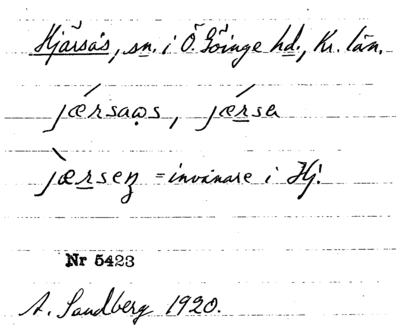 Hjärsås, sn. i Ö. Göinge hd., Kr. län.
jǽrsaǫs, jǽrsa
jæ̀rseʐ = invånare i Hj.
Nr 5423
A. Sandberg 1920.